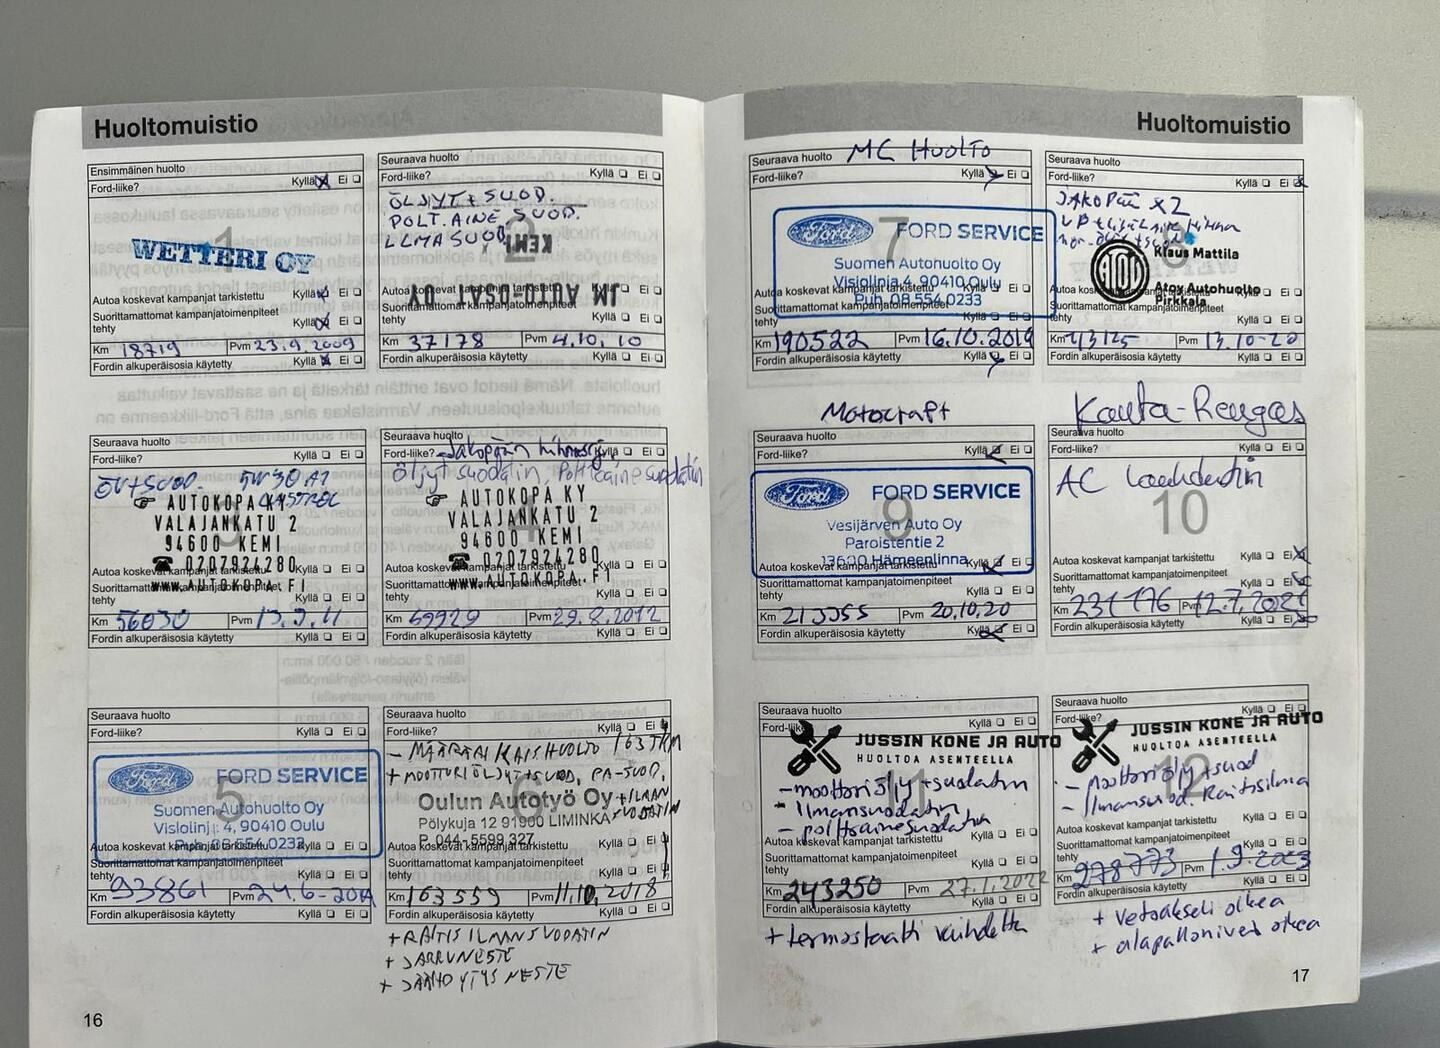 Huoltomuistio
Ensimmäinen huolto
Ford-liike? Kyllä Ei
1
WETTERI OY
Autoa koskevat kampanjat tarkistettu Kyllä Ei
Suorittamattomat kampanjatoimenpiteet
tehty Kyllä Ei
Km 18719 Pvm 23.9.2009
Fordin alkuperäisosia käytetty Kyllä Ei
Seuraava huolto
Ford-liike? Kyllä Ei
ÖLJYT + SUOD.
POLT.AINE SUOD.
ILMA SUOD.
2
KEMI
JM AUTO-OSAT OY
Autoa koskevat kampanjat tarkistettu Kyllä Ei
Suorittamattomat kampanjatoimenpiteet
tehty Kyllä Ei
Km 37178 Pvm 4.10.10
Fordin alkuperäisosia käytetty Kyllä Ei
Seuraava huolto
Ford-liike? Kyllä Ei
5W30 A1
CASTROL
AUTOKOPA KY
VALAJANKATU 2
94600 KEMI
0207924280
Autoa koskevat kampanjat tarkistettu Kyllä Ei
www.AUTOKOPA.FI
Suorittamattomat kampanjatoimenpiteet
tehty Kyllä Ei
Km 56030 Pvm 13.9.11
Fordin alkuperäisosia käytetty Kyllä Ei
Seuraava huolto
Ford-liike? Kyllä Ei
Jakopään hihnasrj
Öljyt suodatin, Polttoainesuodatin
4
AUTOKOPA KY
VALAJANKATU 2
94600 KEMI
0207924280
Autoa koskevat kampanjat tarkistettu Kyllä Ei
www.AUTOKOPA.FI
Suorittamattomat kampanjatoimenpiteet
tehty Kyllä Ei
Km 69929 Pvm 29.8.2012
Fordin alkuperäisosia käytetty Kyllä Ei
Seuraava huolto
Ford-liike? Kyllä Ei
5
Ford FORD SERVICE
Suomen Autohuolto Oy
Vislolinja 4, 90410 Oulu
Puh. 08 554 0233
Autoa koskevat kampanjat tarkistettu Kyllä Ei
Suorittamattomat kampanjatoimenpiteet
tehty Kyllä Ei
Km 93861 Pvm 24.6-2014
Fordin alkuperäisosia käytetty Kyllä Ei
Seuraava huolto
Ford-liike? Kyllä Ei
- MÄÄRÄAIKAISHUOLTO 163TKM
+ MOOTTORIÖLJYT+SUOD, PA-SUOD,
+ ILMAN
SUODATIN
6
Oulun Autotyö Oy
Pölykuja 12 91900 LIMINKA
P. 044-5599 327
Autoa koskevat kampanjat tarkistettu Kyllä Ei
Suorittamattomat kampanjatoimenpiteet
tehty Kyllä Ei
Km 163559 Pvm 11.10.2018
Fordin alkuperäisosia käytetty Kyllä Ei
+ RAITIS ILMANSUODATIN
+ JARRUNESTE
+ JÄÄHDYTYSNESTE
16
Huoltomuistio
Seuraava huolto MC Huolto
Ford-liike? Kyllä Ei
7
Ford FORD SERVICE
Suomen Autohuolto Oy
Vislolinja 4, 90410 Oulu
Puh. 08 554 0233
Autoa koskevat kampanjat tarkistettu Kyllä Ei
Suorittamattomat kampanjatoimenpiteet
tehty Kyllä Ei
Km 190522 Pvm 16.10.2019
Fordin alkuperäisosia käytetty Kyllä Ei
Seuraava huolto
Ford-liike? Kyllä Ei
JAKOPÄÄ X2
8
Klaus Mattila
ATOY
Atoy Autohuolto
Pirkkala
Autoa koskevat kampanjat tarkistettu Kyllä Ei
Suorittamattomat kampanjatoimenpiteet
tehty Kyllä Ei
Km 213125 Pvm 13.10-20
Fordin alkuperäisosia käytetty Kyllä Ei
Motocraft
Seuraava huolto
Ford-liike? Kyllä Ei
9
Ford FORD SERVICE
Vesijärven Auto Oy
Paroistentie 2
13600 Hämeenlinna
Autoa koskevat kampanjat tarkistettu Kyllä Ei
Suorittamattomat kampanjatoimenpiteet
tehty Kyllä Ei
Km 213355 Pvm 20.10.20
Fordin alkuperäisosia käytetty Kyllä Ei
Kauta-Rengas
Seuraava huolto
Ford-liike? Kyllä Ei
AC Lauhdutin
10
Autoa koskevat kampanjat tarkistettu Kyllä Ei
Suorittamattomat kampanjatoimenpiteet
tehty Kyllä Ei
Km 231176 Pvm 12.7.2021
Fordin alkuperäisosia käytetty Kyllä Ei
Seuraava huolto
Ford-liike? Kyllä Ei
JUSSIN KONE JA AUTO
HUOLTOA ASENTEELLA
11
- moottoriöljy + suodatin
- Ilmansuodatin
- polttoainesuodatin
Autoa koskevat kampanjat tarkistettu Kyllä Ei
Suorittamattomat kampanjatoimenpiteet
tehty Kyllä Ei
Km 243250 Pvm 27.1.2022
Fordin alkuperäisosia käytetty Kyllä Ei
+ termostaatti vaihdettu
Seuraava huolto
Ford-liike? Kyllä Ei
JUSSIN KONE JA AUTO
HUOLTOA ASENTEELLA
12
- moottoriöljy + suod
- Ilmansuod. Raitisilma
Autoa koskevat kampanjat tarkistettu Kyllä Ei
Suorittamattomat kampanjatoimenpiteet
tehty Kyllä Ei
Km 278773 Pvm 1.9.2023
Fordin alkuperäisosia käytetty Kyllä Ei
+ vetoakseli oikea
+ alapallonivel oikea
17